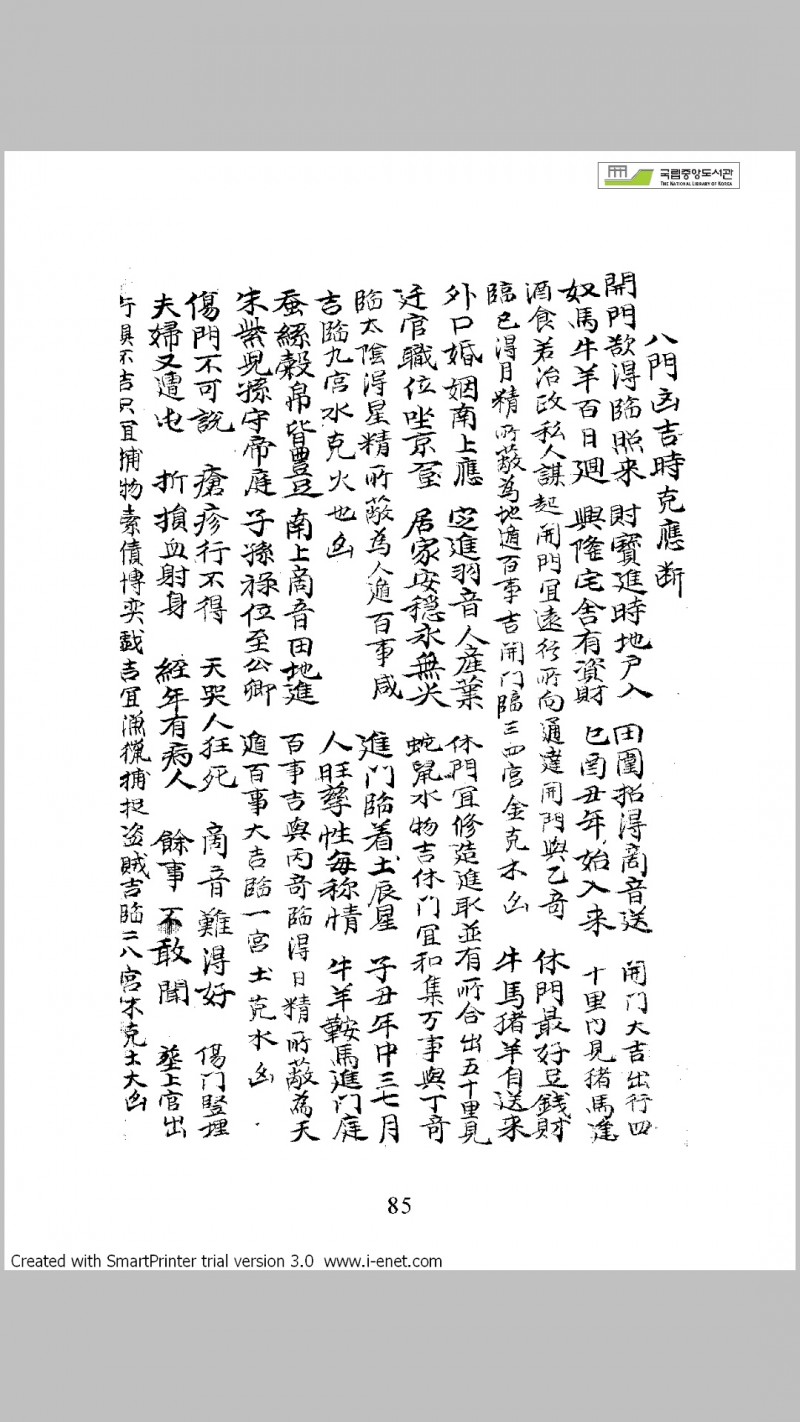 국립중앙도서관
THE NATIONAL LIBRARY OF KOREA
八門凶吉時克應断
開門欲得臨照来 財寶進時地户入 田園招得商音送 開门大吉出行四
奴馬牛羊百日廻 興隆宅舍有資財 巳酉丑年始入来 十里内見猪馬逢
酒食若治政私人謀起開門宜遠行所向通達開門與乙奇
臨已得月精所蔽為地遁百事吉開门臨三四宫金克木凶 休門最好足錢財
牛馬猪羊自送来
外口婚姻南上應 定進羽音人産業 休門宜修造進取並有所合出五十里見
迁官職位坐京 居家安穏永無灾 蛇鼠水物吉休门宜和集万事與丁奇
臨太陰得星精所蔽為人遁百事咸
吉臨九宫水克火也凶
進门臨着土辰星 子丑年中三七月
人旺孳性每称情 牛羊鞍馬進门庭
蚕絲穀帛皆豊足 南上商音田地進 百事吉與丙奇臨得日精所蔽為天
朱紫兒孫守帝庭 子孫禄位至公卿 遁百事大吉臨一宫土克水凶
傷門不可説 瘡疹行不得 天哭人狂死 商音難得好 傷门竪埋
夫婦又遭屯 折損血射身 經年有病人 餘事不敢聞 塟上官出
行俱不吉只宜捕物索債博奕戯吉宜漁獵捕捉盗賊吉臨二八宫木克土大凶
85
Created with SmartPrinter trial version 3.0 www.i-enet.com